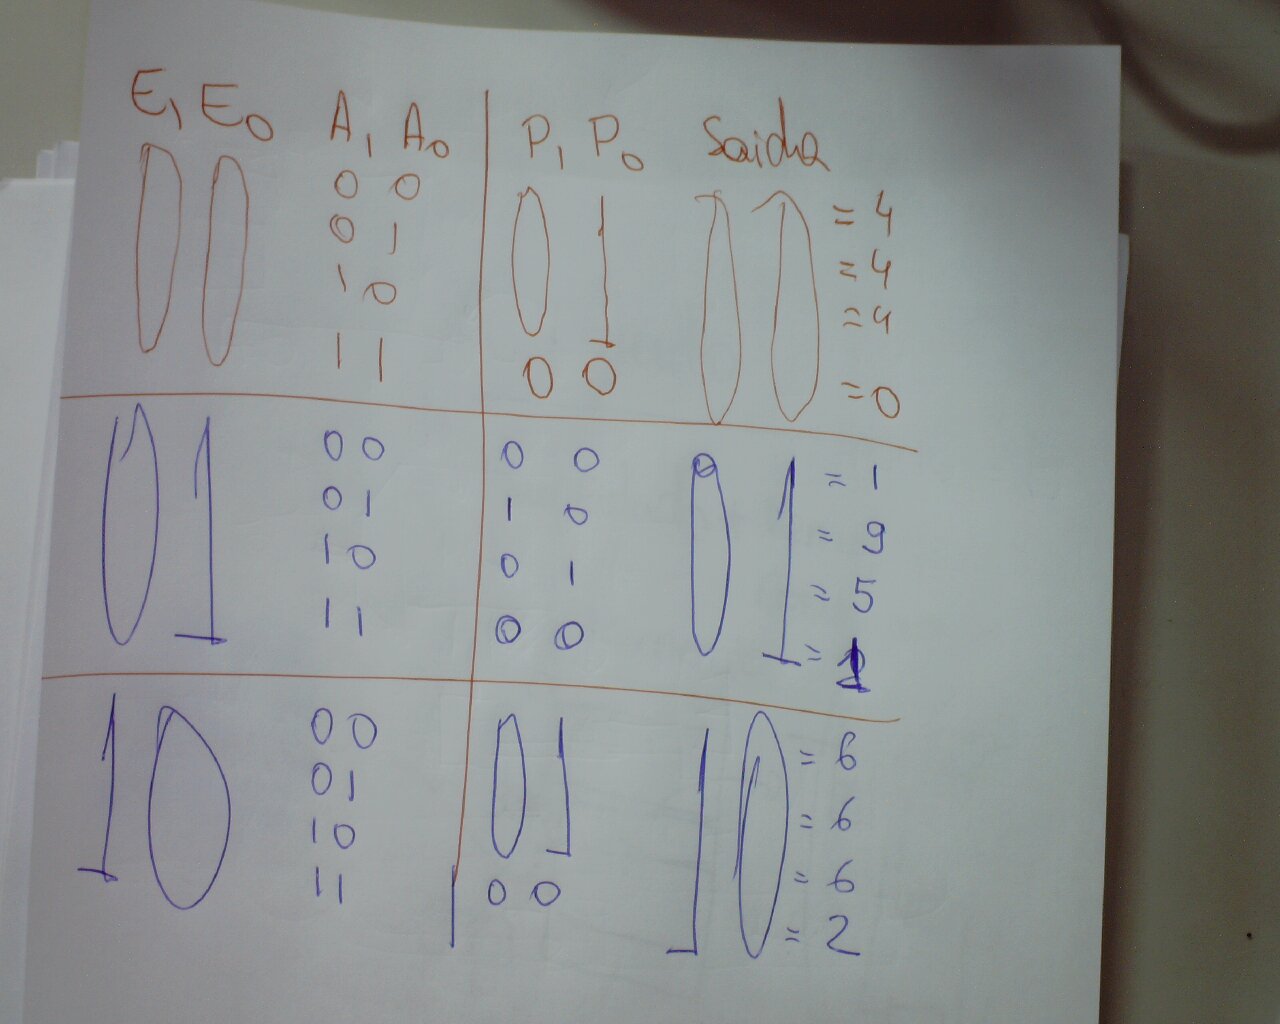 E1 E0 A1 A0 P1 P0 Saida
0 0 0 0 0 1 0 0 = 4
0 1 = 4
1 0 = 4
1 1 0 0 = 0
0 1 0 0 0 0 0 1 = 1
0 1 1 0 = 9
1 0 0 1 = 5
1 1 0 0 = 1
1 0 0 0 0 1 1 0 = 6
0 1 = 6
1 0 = 6
1 1 0 0 = 2